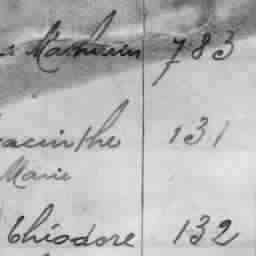 Mathurin 783
yacinthe 131
Marie
Théodore 132